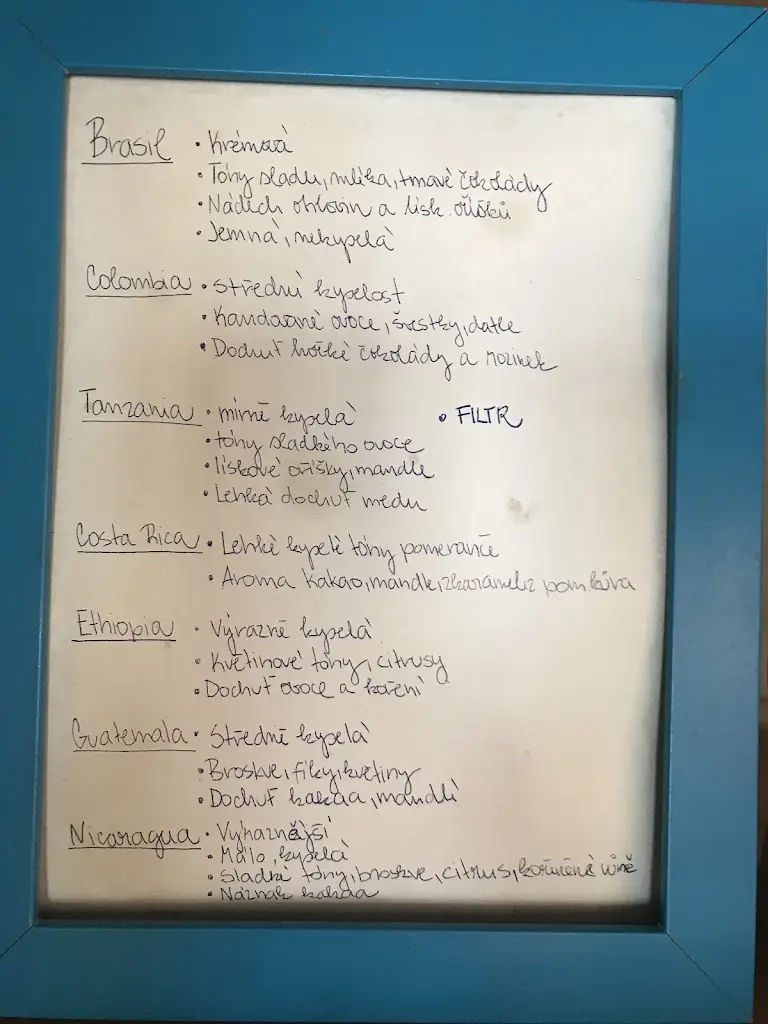 Brasil • Krémová
• Tóny sladu, mléka, tmavé čokolády
• Nádech obilovin a lísk. oříšků
• Jemná, nekyselá
Colombia • Střední kyselost
• Kandované ovoce, švestky, datle
• Dochuť hořké čokolády a rozinek
Tanzania • mírně kyselá • FILTR
• tóny sladkého ovoce
• lískové oříšky, mandle
• Lehká dochuť medu
Costa Rica • Lehké kyselé tóny pomeranče
• Aroma kakao, mandle, zkarameliz
Ethiopia • Výrazně kyselá
• Květinové tóny, citrusy
• Dochuť ovoce a koření
Guatemala • Středně kyselá
• Broskve, fíky, květiny
• Dochuť kakaa, mandlí
Nicaragua • Výraznější
• Málo, kyselá
• Sladké tóny, broskve, citrus, kořeněná vůně
• Náznak kakaa